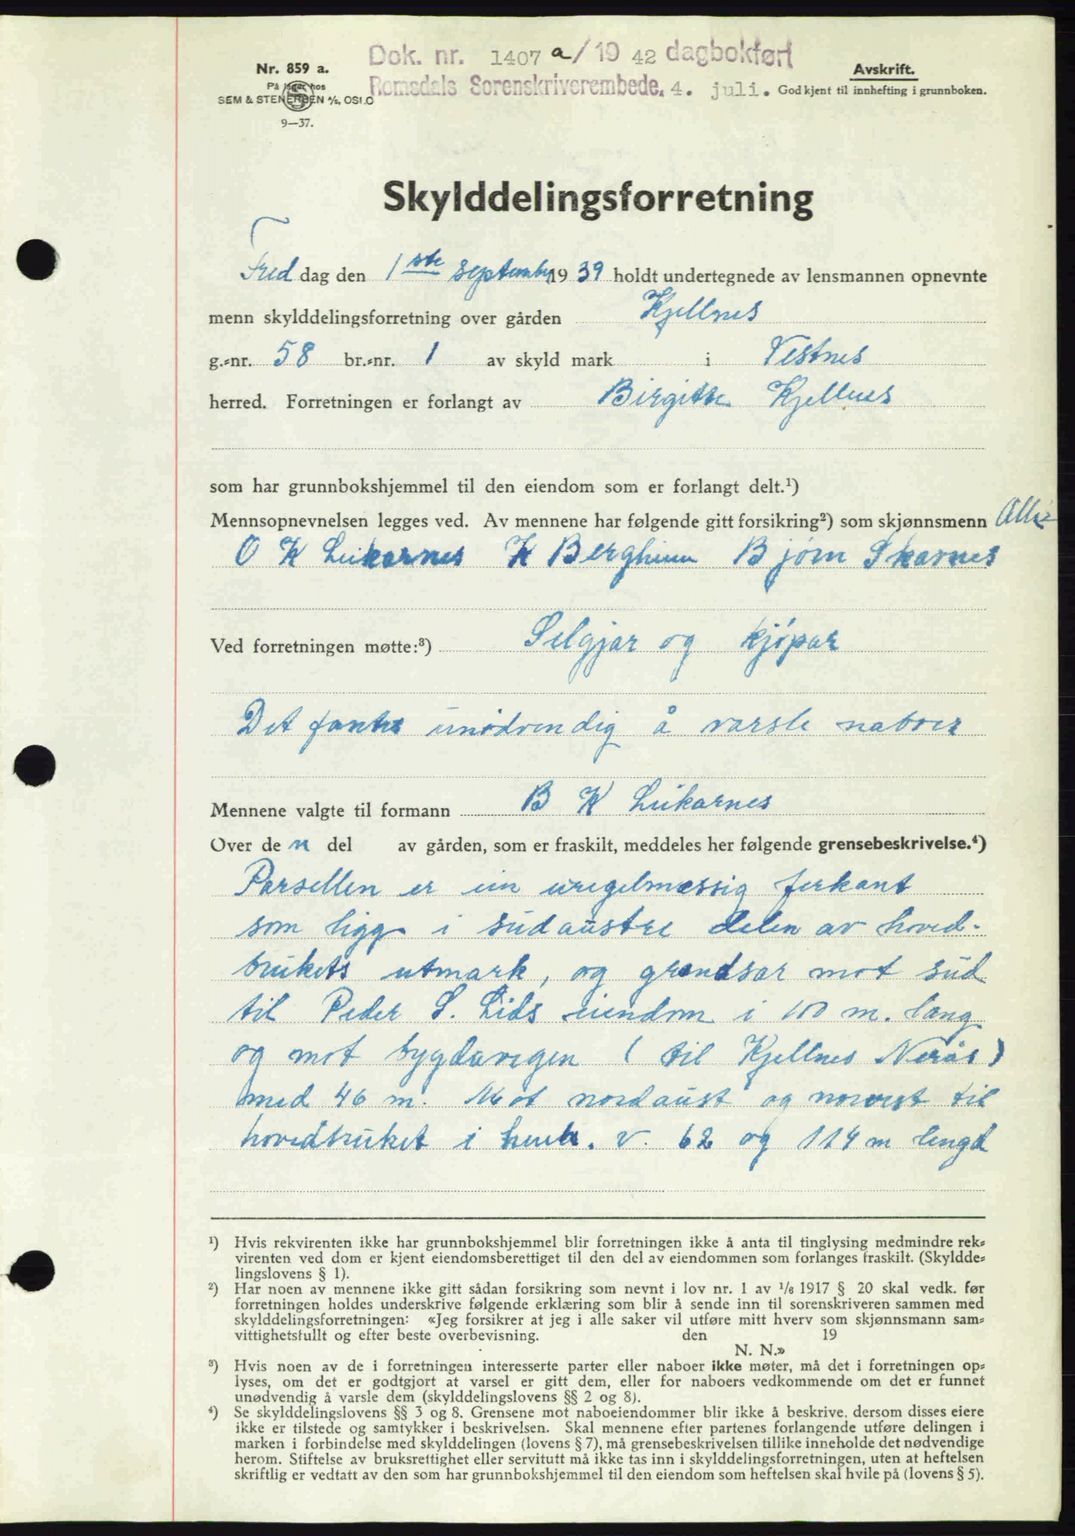 Dok. nr. 1407 a/1942 dagbokført
Romsdals Sorenskriverembede. 4. juli.
Nr. 859 a.
På lager hos
SEM & STENERSEN A/S, OSLO
9—37.
Avskrift.
Godkjent til innhefting i grunnboken.
Skylddelingsforretning
Freddag den 1ste september 1939 holdt undertegnede av lensmannen opnevnte
menn skylddelingsforretning over gården Kjellnes
g.-nr. 58 br.-nr. 1 av skyld mark i Vestnes
herred. Forretningen er forlangt av Birgitte Kjellnes
som har grunnbokshjemmel til den eiendom som er forlangt delt.¹)
Mennsopnevnelsen legges ved. Av mennene har følgende gitt forsikring²) som skjønnsmenn Alle
O K Leikarnes K Bergheim Bjørn Skarnes
Ved forretningen møtte:³) Selgjar og kjøpar
Det fantes unødvendig å varsle naboer
Mennene valgte til formann B K Leikarnes
Over den del av gården, som er fraskilt, meddeles her følgende grensebeskrivelse.⁴)
Parsellen er ein uregelmessig firkant
som ligg i sudaustre delen av hoved-
brukets utmark, og grendsar mot sud
til Peder S. Lids eiendom i 100 m. lang
og mot bygdavegen (til Kjellnes Nerås)
med 46 m. Mot nordaust og norvest til
hovedbruket i henh. v. 62 og 114 m lengd
¹) Hvis rekvirenten ikke har grunnbokshjemmel blir forretningen ikke å anta til tinglysing medmindre rek-
virenten ved dom er kjent eiendomsberettiget til den del av eiendommen som forlanges fraskilt. (Skyldde-
lingslovens § 1).
²) Har noen av mennene ikke gitt sådan forsikring som nevnt i lov nr. 1 av ¹/₈ 1917 § 20 skal vedk. før
forretningen holdes underskrive følgende erklæring som blir å sende inn til sorenskriveren sammen med
skylddelingsforretningen: «Jeg forsikrer at jeg i alle saker vil utføre mitt hverv som skjønnsmann sam-
vittighetsfullt og efter beste overbevisning. den 19
N. N.»
³) Hvis noen av de i forretningen interesserte parter eller naboer ikke møter, må det i forretningen op-
lyses, om det er godtgjort at varsel er gitt dem, eller for naboers vedkommende om det er funnet
unødvendig å varsle dem (skylddelingslovens §§ 2 og 8).
⁴) Se skylddelingslovens §§ 3 og 8. Grensene mot naboeiendommer blir ikke å beskrive, dersom disses eiere
ikke er tilstede og samtykker i beskrivelsen. Skal mennene efter partenes forlangende utføre delingen i
marken i forbindelse med skylddelingen (lovens § 7), må grensebeskrivelsen tillike inneholde det nødvendige
herom. Stiftelse av bruksrettighet eller servitutt må ikke tas inn i skylddelingsforretningen, uten at heftelsen
skriftlig er vedtatt av den som har grunnbokshjemmel til den eiendom som heftelsen skal hvile på (lovens § 5).